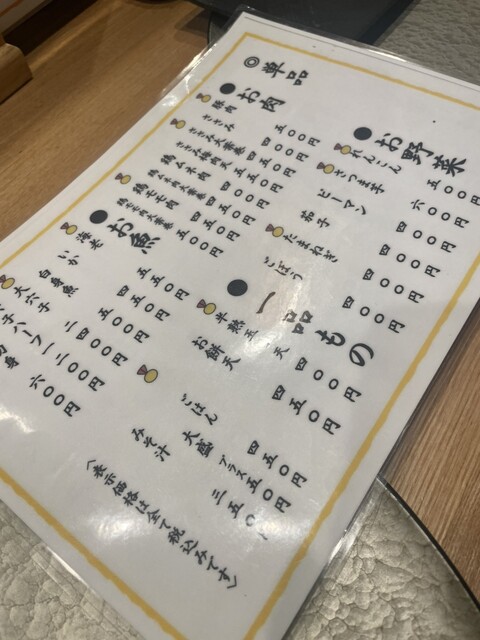 ◎単品
●お肉
豚肉 五〇〇円
ささみ 四〇〇円
ささみ大葉巻 四五〇円
ささみ梅肉天 四五〇円
鶏ムネ肉 四〇〇円
鶏ムネ肉大葉巻 四五〇円
鶏モモ肉 四五〇円
鶏モモ肉大葉巻 五〇〇円
●お魚
海老 五五〇円
いか 四五〇円
白身魚 五〇〇円
大穴子 二四〇〇円
子ハーフ 一二〇〇円
身 六〇〇円
●お野菜
れんこん 五〇〇円
さつま芋 六〇〇円
ピーマン 四〇〇円
茄子 四〇〇円
たまねぎ 四〇〇円
ごぼう 四〇〇円
●一品もの
半熟玉子天 四〇〇円
お餅天 四五〇円
ごはん 四五〇円
大盛 プラス五〇円
みそ汁 三五〇円
〈表示価格は全て税込みです〉